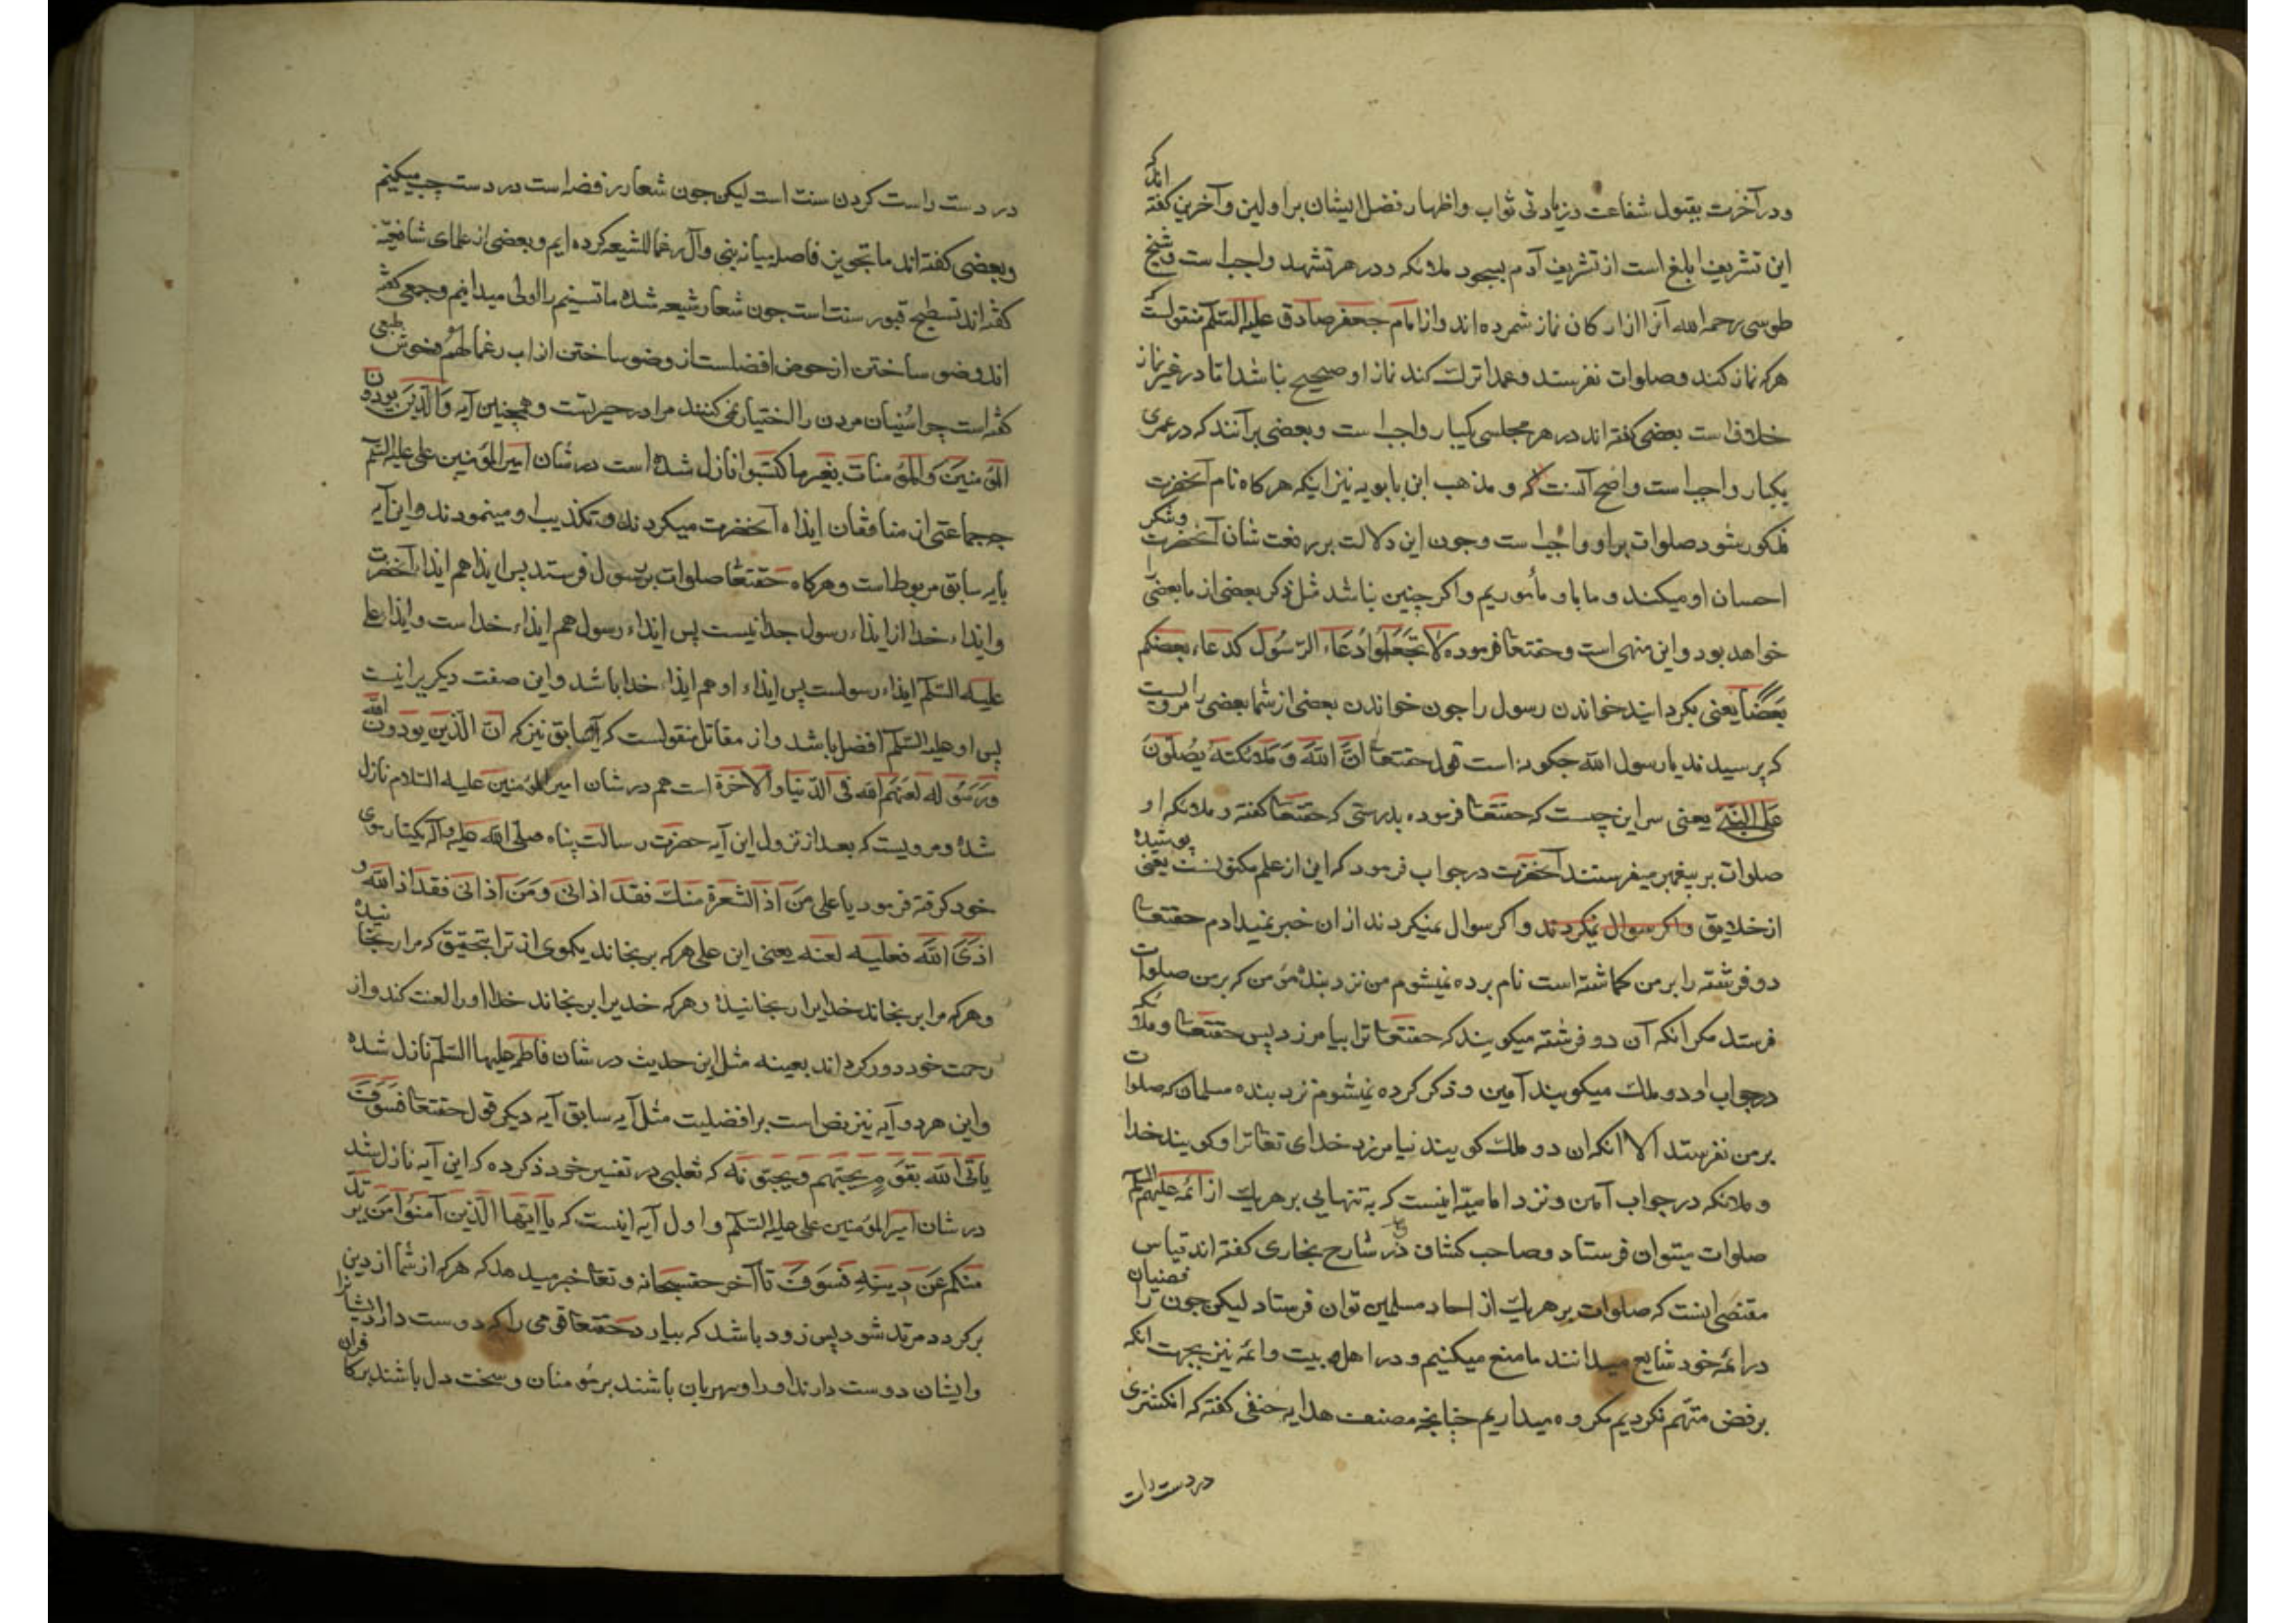 ودر آخرت بقبول شفاعت و زیادتی ثواب واظهار فضل ایشان بر اولین و آخرین کفته اند که
این تشریف ابلغ است از تشریف آدم بسجود ملائکه ودر هر تشهد واجب است و شیخ
طوسی رحمه الله آنرا از ارکان نماز شمرده اند واز امام جعفر صادق علیه السلم منقولست که
هر که نماز کند و صلوات نفرستد وعمدا ترک کند نماز او صحیح نباشد اما در غیر نماز
خلافست بعضی کفته اند در هر مجلسی یکبار واجب است وبعضی برآنند که در عمری
یکبار واجب است واصح آنست که و مذهب ابن بابویه نیز اینکه هر کاه نام آنحضرت
مذکور شود صلوات بر او واجب است وچون این دلالت بر رفعت شان آنحضرت وشکر
احسان او میکند وما باو مأموریم واکر چنین نباشد مثل ذکر بعضی از ما بعضی را
خواهد بود واین منهی است وحقتعا فرموده لا تجعلوا دعاء الرسول کدعاء بعضکم
بعضا یعنی مکردانید خواندن رسول را چون خواندن بعضی از شما بعضی را مرویست
که پرسیدند یا رسول الله چکونه است قول حقتعا ان الله وملائکته یصلون
علی النبی یعنی سر این چیست که حقتعا فرموده بدرستی که حقتعا کفته و ملائکه او
صلوات بر پیغمبر میفرستند آنحضرت در جواب فرمود که این از علم مکنونست یعنی پوشیده
از خلایق واکر سوال نمیکردند واکر سوال نمیکردند از ان خبر نمیدادم حقتعا
دو فرشته را بر من کماشته است نام برده نمیشوم من نزد بنده مؤمن که بر من صلوات
فرستد مکر انکه آن دو فرشته میکویند که حقتعا ترا بیامرزد پس حقتعا وملائکه
در جواب او دو ملک میکویند آمین وذکر کرده نمیشوم نزد بنده مسلمان که صلوات
بر من نفرستد الا انکه ان دو ملک کویند نیامرزد خدای تعا ترا وکویند خدا
و ملائکه در جواب آمین ونزد امامیه اینست که به تنهایی بر هر یک از ائمه علیهم السلم
صلوات میتوان فرستاد وصاحب کشاف و شارح بخاری کفته اند قیاس
مقتضی اینست که صلوات بر هر یک از احاد مسلمین توان فرستاد لیکن چون رفضیان را
در ائمه خود شایع میدانند ما منع میکنیم ودر اهل بیت وائمه نیز بجهت انکه
برفض متهم نکردیم مکروه میداریم چنانچه مصنف هدایه حنفی کفته که انکشتری
در دست راست
در دست راست کردن سنت است لیکن چون شعار رفضه است در دست چپ میکنیم
وبعضی کفته اند ما تجویز فاصله میانه نبی وآل رغما للشیعه کرده ایم وبعضی از علمای شافعیه
کفته اند تسطیح قبور سنت است چون شعار شیعه شده ما تسنیم را اولی میدانیم وجمعی کفته
اند وضو ساختن از حوض افضلست از وضو ساختن از اب رغما لهم وخوش طبعی
کفته است چرا سنیان مردن را اختیار نمی کنند مرا در حیرتست وهمچنین آیه والذین یوذون
المؤمنین والمؤمنات بغیر ما کتسبوا نازل شده است در شان امیر المؤمنین علی علیه السلم
چه جماعتی از منافقان ایذاء آنحضرت میکردند وتکذیب او مینمودند واین آیه
بآیه سابق مربوط است وهر کاه حقتعا صلوات بر رسول فرستد پس ایذا هم ایذاء آنحضرت
وایذاء خدا از ایذاء رسول جدا نیست پس ایذاء رسول هم ایذاء خداست وایذاء علی
علیه السلم ایذاء رسولست پس ایذاء او هم ایذاء خدا باشد واین صفت دیکر یرا نیست
پس او علیه السلم افضل باشد واز مقاتل منقولست که آیه سابق نیز که ان الذین یوذون الله
ورسوله لعنهم الله فی الدنیا والاخرة است هم در شان امیر المؤمنین علیه السلام نازل
شده ومرویست که بعد از نزول این آیه حضرت رسالت پناه صلی الله علیه وآله یکتار موی
خود کرفته فرمود یا علی من اذ الشعرة منک فقد اذانی ومن اذانی فقد اذ الله و
اذی الله فعلیه لعنه یعنی این علی هر که برنجاند یکموی از ترا بتحقیق که مرا رنجانیده
وهر که مرا برنجاند خدایرا رنجانیده وهر که خدیرا برنجاند خدا او را لعنت کند واز
رحمت خود دور کرداند بعینه مثل این حدیث در شان فاطمه علیها السلم نازل شده
واین هر دو آیه نیز نص است بر افضلیت مثل آیه سابق آیه دیکر قول حقتعا فسوف
یاتی الله بقوم یحبهم ویحبونه که ثعلبی در تفسیر خود ذکر کرده که این آیه نازل شد
در شان امیر المؤمنین علی علیه السلم واول آیه اینست که یا ایها الذین آمنوا من یرتد
منکم عن دینه فسوف تا آخر حقسبحانه وتعا خبر میدهد که هر که از شما از دین
برکردد مرتد شود پس زود باشد که بیارد حقتعا قومی را که دوست دارد ایشانرا
وایشان دوست دارند او را ومهربان باشند بر مؤمنان وسخت دل باشند بر کافران